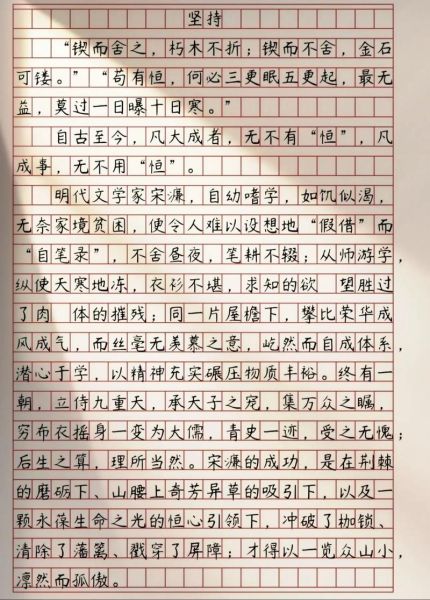 坚持
“锲而舍之，朽木不折；锲而不舍，金石
可镂。”“苟有恒，何必三更眠五更起，最无
益，莫过一日曝十日寒。”
自古至今，凡大成者，无不有“恒”，凡
成事，无不用“恒”。
明代文学家宋濂，自幼嗜学，如饥似渴，
无奈家境贫困，使令人难以设想地“假借”而
“自笔录”，不舍昼夜，笔耕不辍；从师游学，
纵使天寒地冻，衣衫不堪，求知的欲 望胜过
了肉 体的摧残；同一片屋檐下，攀比荣华成
风成气，而丝毫无羡慕之意，屹然而自成体系，
潜心于学，以精神充实碾压物质丰裕。终有一
朝，立侍九重天，承天子之宠，集万众之瞩，
穷布衣摇身一变为大儒，青史一迹，受之无愧；
后生之算，理所当然。宋濂的成功，是在荆棘
的磨砺下、山腰上奇芳异草的吸引下，以及一
颗永葆生命之光的恒心引领下，冲破了枷锁、
清除了藩篱、戳穿了屏障；才得以一览众山小，
凛然而孤傲。